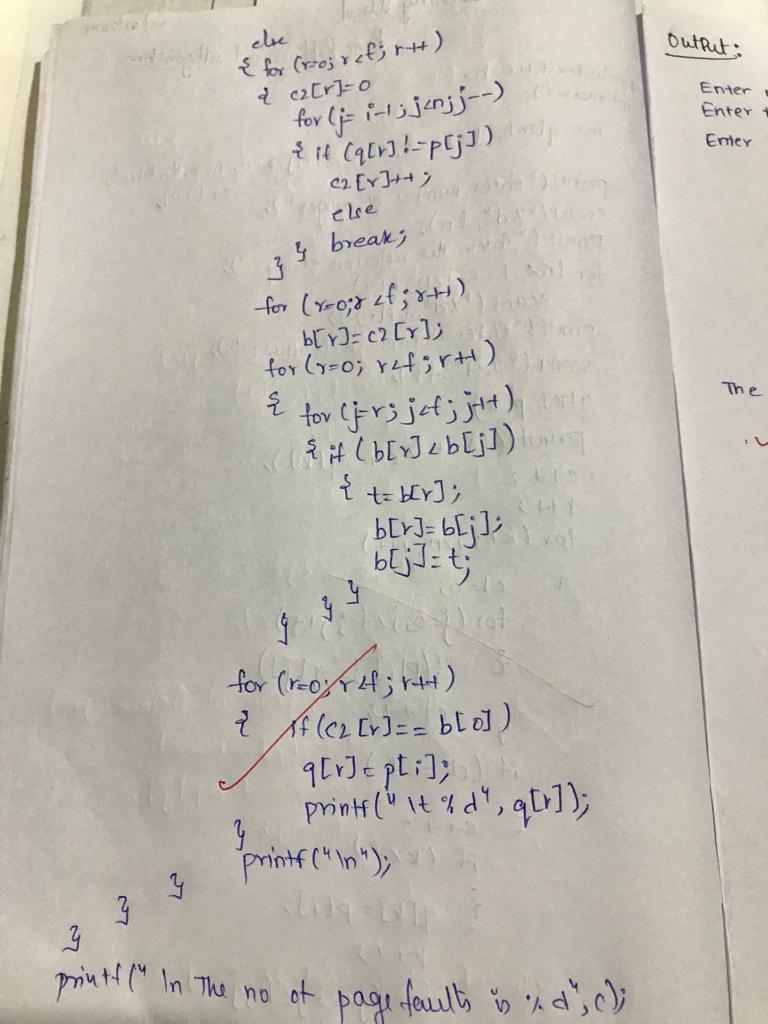 else
{ for (r=0; r<f; r++)
{ c2[r]=0
for (j= i-1; j<n; j--)
{ if (q[r] != p[j])
c2[r]++;
else
} break;
}
for (r=0; r<f; r++)
b[r]=c2[r];
for (r=0; r<f; r++)
{ for (j=r; j<f; j++)
{ if (b[r]<b[j])
{ t=b[r];
b[r]=b[j];
b[j]=t;
} } }
for (r=0; r<f; r++)
{ if(c2[r]== b[0])
q[r]=p[i];
printf("\t%d", q[r]);
}
printf("\n");
}
}
}
printf(" \n The no of page faults is %d",c);
Output:
Enter
Enter
Enter
The